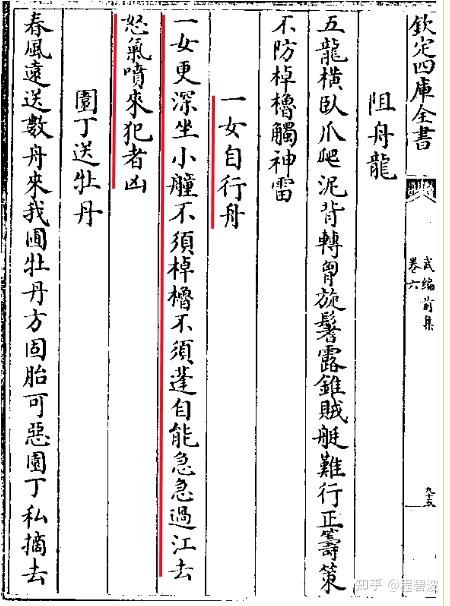 欽定四庫全書
武編前集
卷六
九十五
阻舟龍
五龍横臥爪爬泥背轉胷旋鬐露錐賊艇難行正籌策
不防棹櫓觸神雷
一女自行舟
一女更深坐小艟不須棹櫓不須蓬自能急急過江去
怒氣噴來犯者凶
園丁送牡丹
春風遠送數舟來我圃牡丹方固胎可惡園丁私摘去
知乎 @程碧波